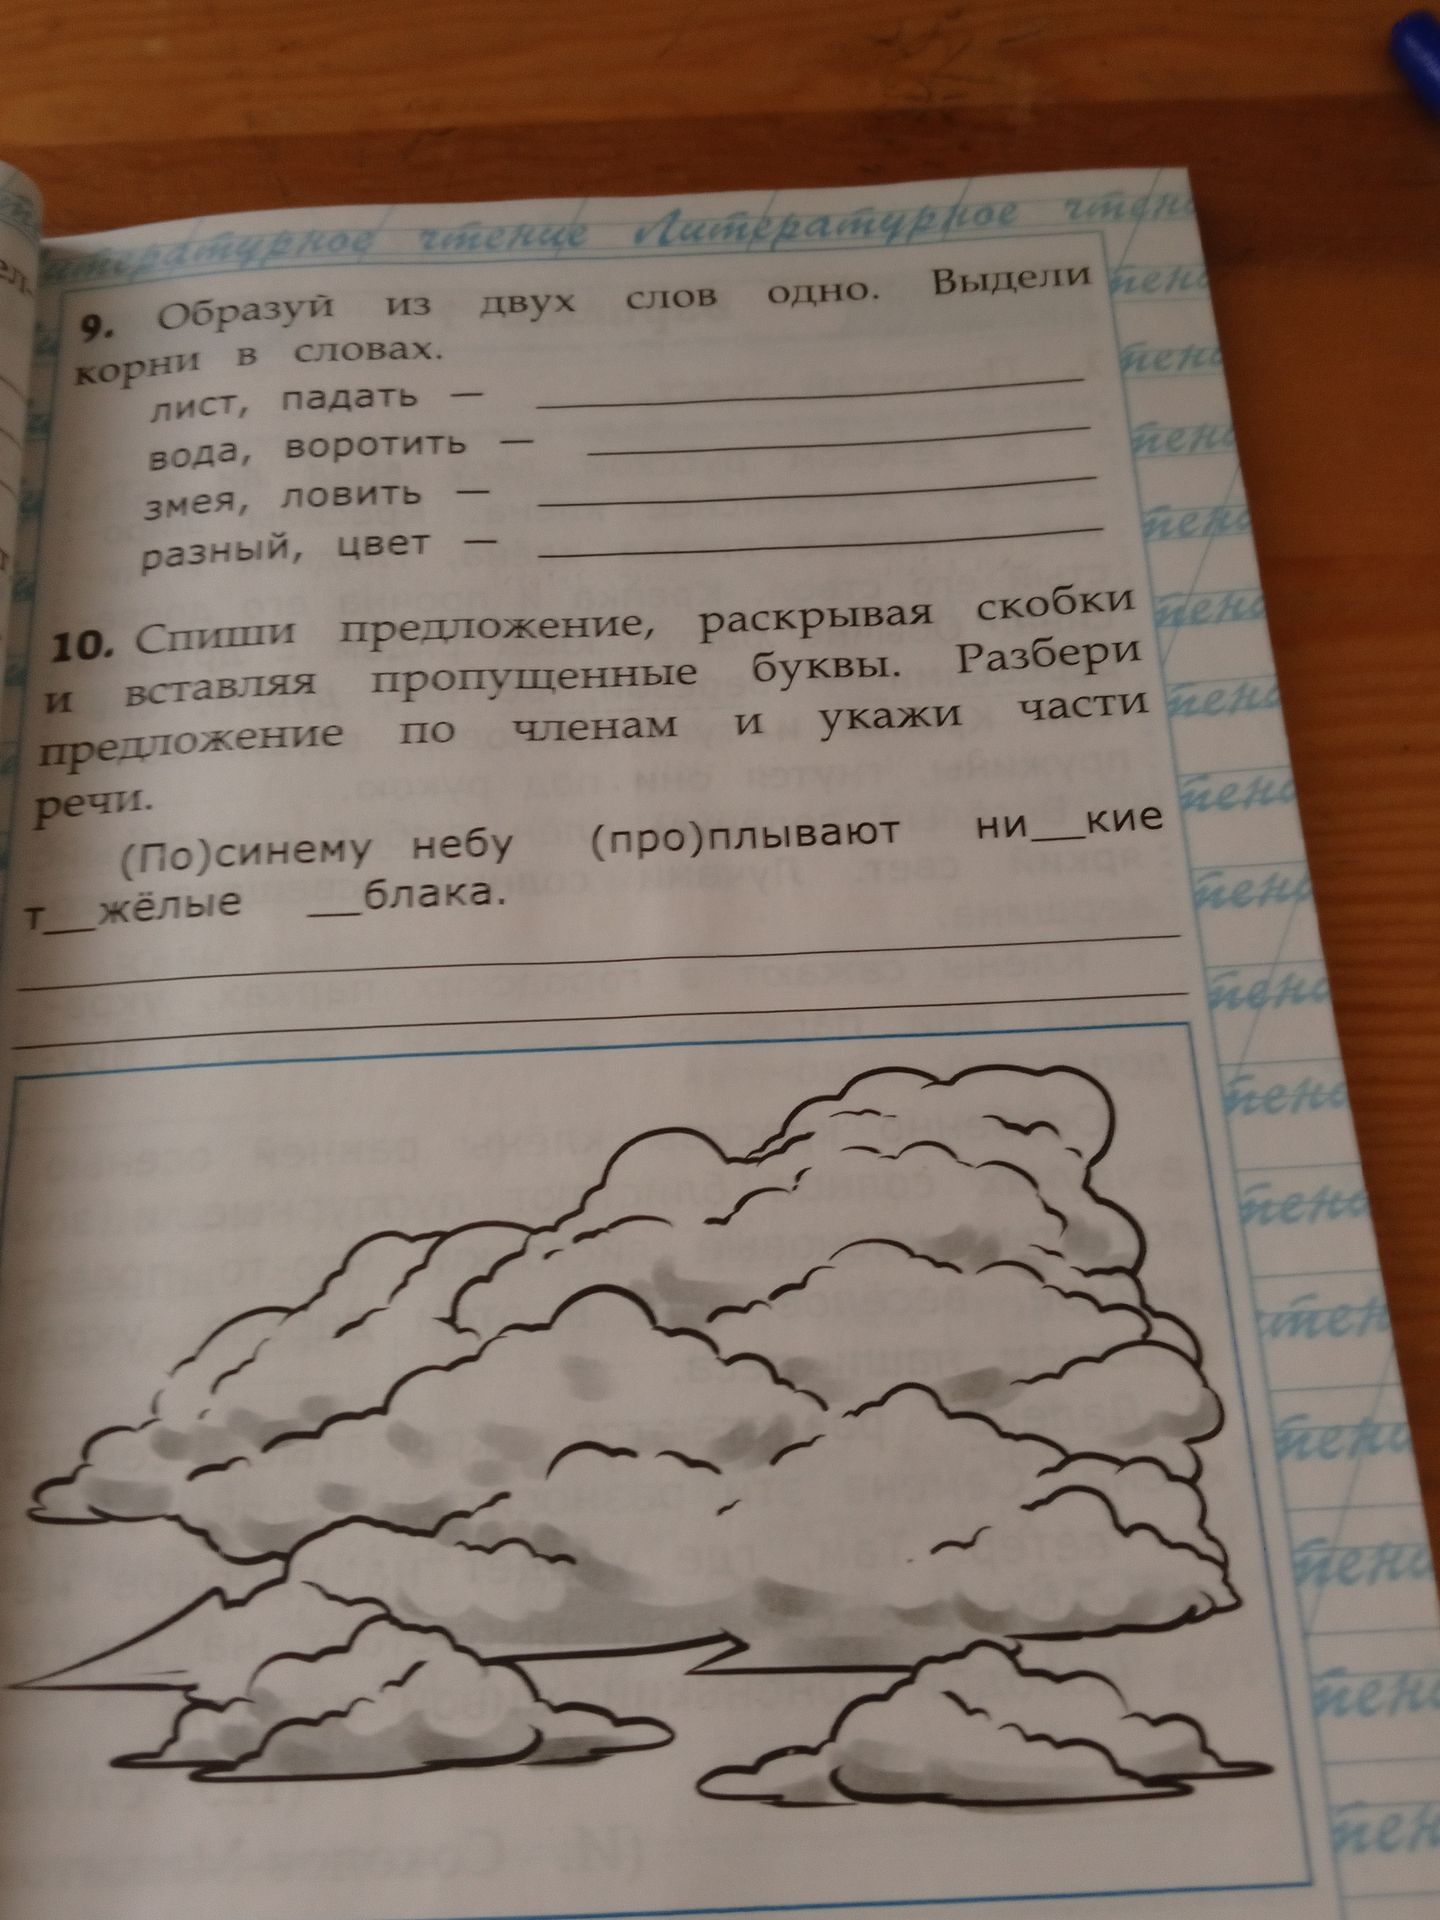 Литературное чтение Литературное чтен
9. Образуй из двух слов одно. Выдели
корни в словах.
лист, падать — ____
вода, воротить — ____
змея, ловить — ____
разный, цвет — ____
10. Спиши предложение, раскрывая скобки
и вставляя пропущенные буквы. Разбери
предложение по членам и укажи части
речи.
(По)синему небу (про)плывают ни__кие
т__жёлые __блака.